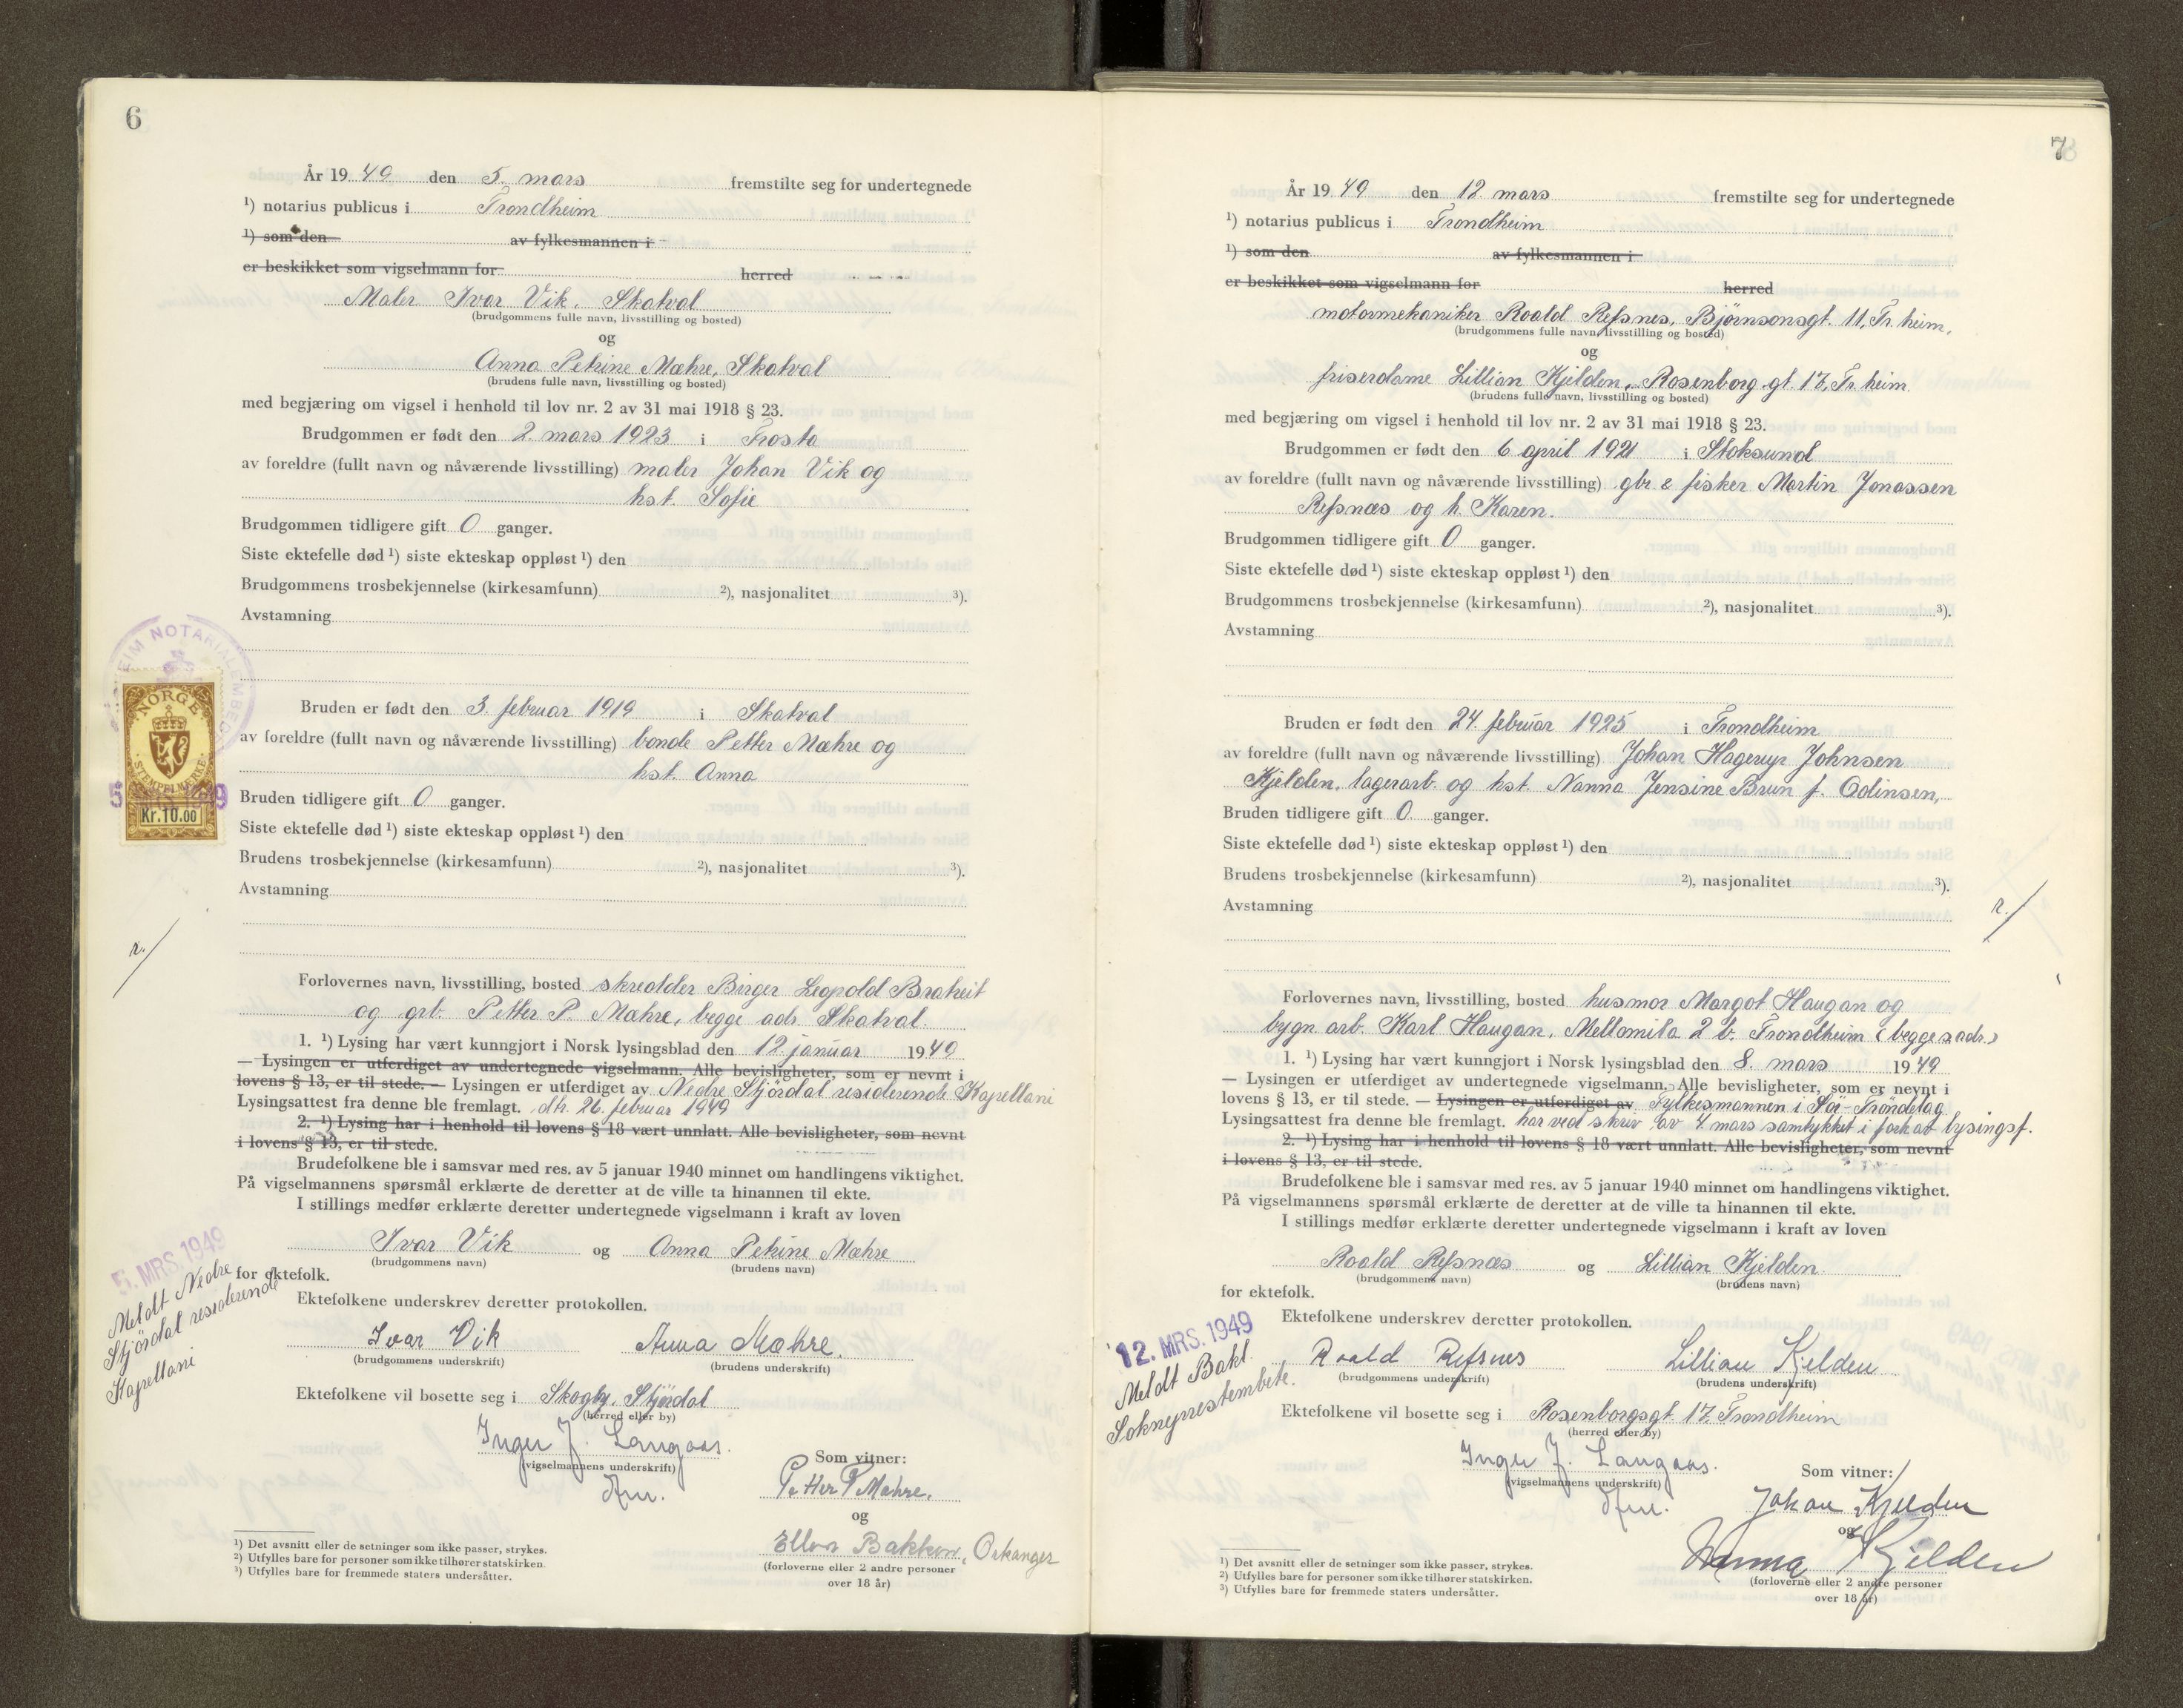 6
År 1949 den 5. mars fremstilte seg for undertegnede
¹) notarius publicus i Trondheim
¹) som den av fylkesmannen i
er beskikket som vigselmann for herred
Maler Ivar Vik, Skatval
(brudgommens fulle navn, livsstilling og bosted)
og
Anna Petrine Mæhre, Skatval
(brudens fulle navn, livsstilling og bosted)
med begjæring om vigsel i henhold til lov nr. 2 av 31 mai 1918 § 23.
Brudgommen er født den 2. mars 1923 i Frosta
av foreldre (fullt navn og nåværende livsstilling) maler Johan Vik og
hst. Sofie
Brudgommen tidligere gift 0 ganger.
Siste ektefelle død ¹) siste ekteskap oppløst ¹) den
Brudgommens trosbekjennelse (kirkesamfunn) ²), nasjonalitet ³).
Avstamning
NOTARIALEMBED
NORGE
STEMPELMERKE
Kr.10.00
Bruden er født den 3. februar 1919 i Skatval
av foreldre (fullt navn og nåværende livsstilling) bonde Petter Mæhre og
hst. Anna
Bruden tidligere gift 0 ganger.
Siste ektefelle død ¹) siste ekteskap oppløst ¹) den
Brudens trosbekjennelse (kirkesamfunn) ²), nasjonalitet ³).
Avstamning
r./
Forlovernes navn, livsstilling, bosted skredder Birger Leopold Braheit
og grb. Petter P. Mæhre, begge adr. Skatval.
1. ¹) Lysing har vært kunngjort i Norsk lysingsblad den 12. januar 1949
— Lysingen er utferdiget av undertegnede vigselmann. Alle bevisligheter, som er nevnt i
lovens § 13, er til stede. — Lysingen er utferdiget av Nedre Stjördal residerende Kapellani
Lysingsattest fra denne ble fremlagt. dtr. 26. februar 1949
2. ¹) Lysing har i henhold til lovens § 18 vært unnlatt. Alle bevisligheter, som nevnt
i lovens § 13, er til stede.
Brudefolkene ble i samsvar med res. av 5 januar 1940 minnet om handlingens viktighet.
På vigselmannens spørsmål erklærte de deretter at de ville ta hinannen til ekte.
I stillings medfør erklærte deretter undertegnede vigselmann i kraft av loven
Ivar Vik og Anna Petrine Mæhre
(brudgommens navn) (brudens navn)
for ektefolk.
5. MRS. 1949
Meldt Nedre
Stjördal residerende
Kapellani
Ektefolkene underskrev deretter protokollen.
Ivar Vik Anna Mæhre.
(brudgommens underskrift) (brudens underskrift)
Ektefolkene vil bosette seg i Skogby, Stjördal
(herred eller by)
Inger J. Langaas.
(vigselmannens underskrift)
dfm.
Som vitner:
Petter P Mæhre.
og
Ellor Bakken, Orkanger
(forloverne eller 2 andre personer
over 18 år)
¹) Det avsnitt eller de setninger som ikke passer, strykes.
²) Utfylles bare for personer som ikke tilhører statskirken.
³) Utfylles bare for fremmede staters undersåtter.
7
År 1949 den 12. mars fremstilte seg for undertegnede
¹) notarius publicus i Trondheim
¹) som den av fylkesmannen i
er beskikket som vigselmann for herred
motormekaniker Roald Refsnes, Björnsonsgt. 11, Tr.heim,
(brudgommens fulle navn, livsstilling og bosted)
og
friserdame Lillian Kjelden, Rosenborg gt. 17, Tr.heim
(brudens fulle navn, livsstilling og bosted)
med begjæring om vigsel i henhold til lov nr. 2 av 31 mai 1918 § 23.
Brudgommen er født den 6 april 1921 i Stoksund
av foreldre (fullt navn og nåværende livsstilling) gbr & fisker Martin Jonassen
Refsnæs og h. Karen.
Brudgommen tidligere gift 0 ganger.
Siste ektefelle død ¹) siste ekteskap oppløst ¹) den
Brudgommens trosbekjennelse (kirkesamfunn) ²), nasjonalitet ³).
Avstamning
Bruden er født den 24. februar 1925 i Trondheim
av foreldre (fullt navn og nåværende livsstilling) Johan Hagerup Johnsen
Kjelden, lagerarb. og hst. Nanna Jensine Brun f. Odinsen,
Bruden tidligere gift 0 ganger.
Siste ektefelle død ¹) siste ekteskap oppløst ¹) den
Brudens trosbekjennelse (kirkesamfunn) ²), nasjonalitet ³).
Avstamning
r./
Forlovernes navn, livsstilling, bosted husmor Margot Haugan og
bygn.arb. Karl Haugan, Mellomila 2 b. Trondheim (begges adr.)
1. ¹) Lysing har vært kunngjort i Norsk lysingsblad den 8. mars 1949
— Lysingen er utferdiget av undertegnede vigselmann. Alle bevisligheter, som er nevnt i
lovens § 13, er til stede. — Lysingen er utferdiget av Fylkesmannen i Sör-Tröndelag
Lysingsattest fra denne ble fremlagt. har ved skriv av 4 mars samtykket i forkort lysingsf.
2. ¹) Lysing har i henhold til lovens § 18 vært unnlatt. Alle bevisligheter, som nevnt
i lovens § 13, er til stede.
Brudefolkene ble i samsvar med res. av 5 januar 1940 minnet om handlingens viktighet.
På vigselmannens spørsmål erklærte de deretter at de ville ta hinannen til ekte.
I stillings medfør erklærte deretter undertegnede vigselmann i kraft av loven
Roald Refsnæs og Lillian Kjelden
(brudgommens navn) (brudens navn)
for ektefolk.
12. MRS. 1949
Meldt Bakl.
Sokneprestembete.
Ektefolkene underskrev deretter protokollen.
Roald Refsnes Lillian Kjelden
(brudgommens underskrift) (brudens underskrift)
Ektefolkene vil bosette seg i Rosenborgsgt. 17 Trondheim
(herred eller by)
Inger J. Langaas.
(vigselmannens underskrift)
dfm.
Som vitner:
Johan Kjelden
og
Nanna Kjelden
(forloverne eller 2 andre personer
over 18 år)
¹) Det avsnitt eller de setninger som ikke passer, strykes.
²) Utfylles bare for personer som ikke tilhører statskirken.
³) Utfylles bare for fremmede staters undersåtter.